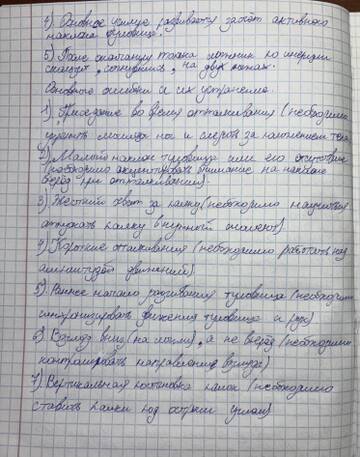 4) Основное усилие развивается за счёт активного
наклона туловища.
5) После окончания толчка лыжник по инерции
скользит, согнувшись, на двух лыжах.
Основные ошибки и их устранение.
1) Приседание во время отталкивания (необходимо
мышцы ног и следить за наклонением тела
2) Малый наклон туловища или его отсутствие
(необходимо акцентировать внимание на наклоне
вперёд при отталкивании)
3) Жесткий хват за палку (необходимо научиться
отпускать палку в нужный момент)
4) Короткие отталкивания (необходимо работать над
амплитудой движений)
5) Раннее начало разгибания туловища (необходимо
синхронизировать движения туловища и рук)
6) Взгляд вниз (на лыжи), а не вперёд (необходимо
контролировать направление взгляда)
7) Вертикальная постановка палок (необходимо
ставить палки под острым углом)